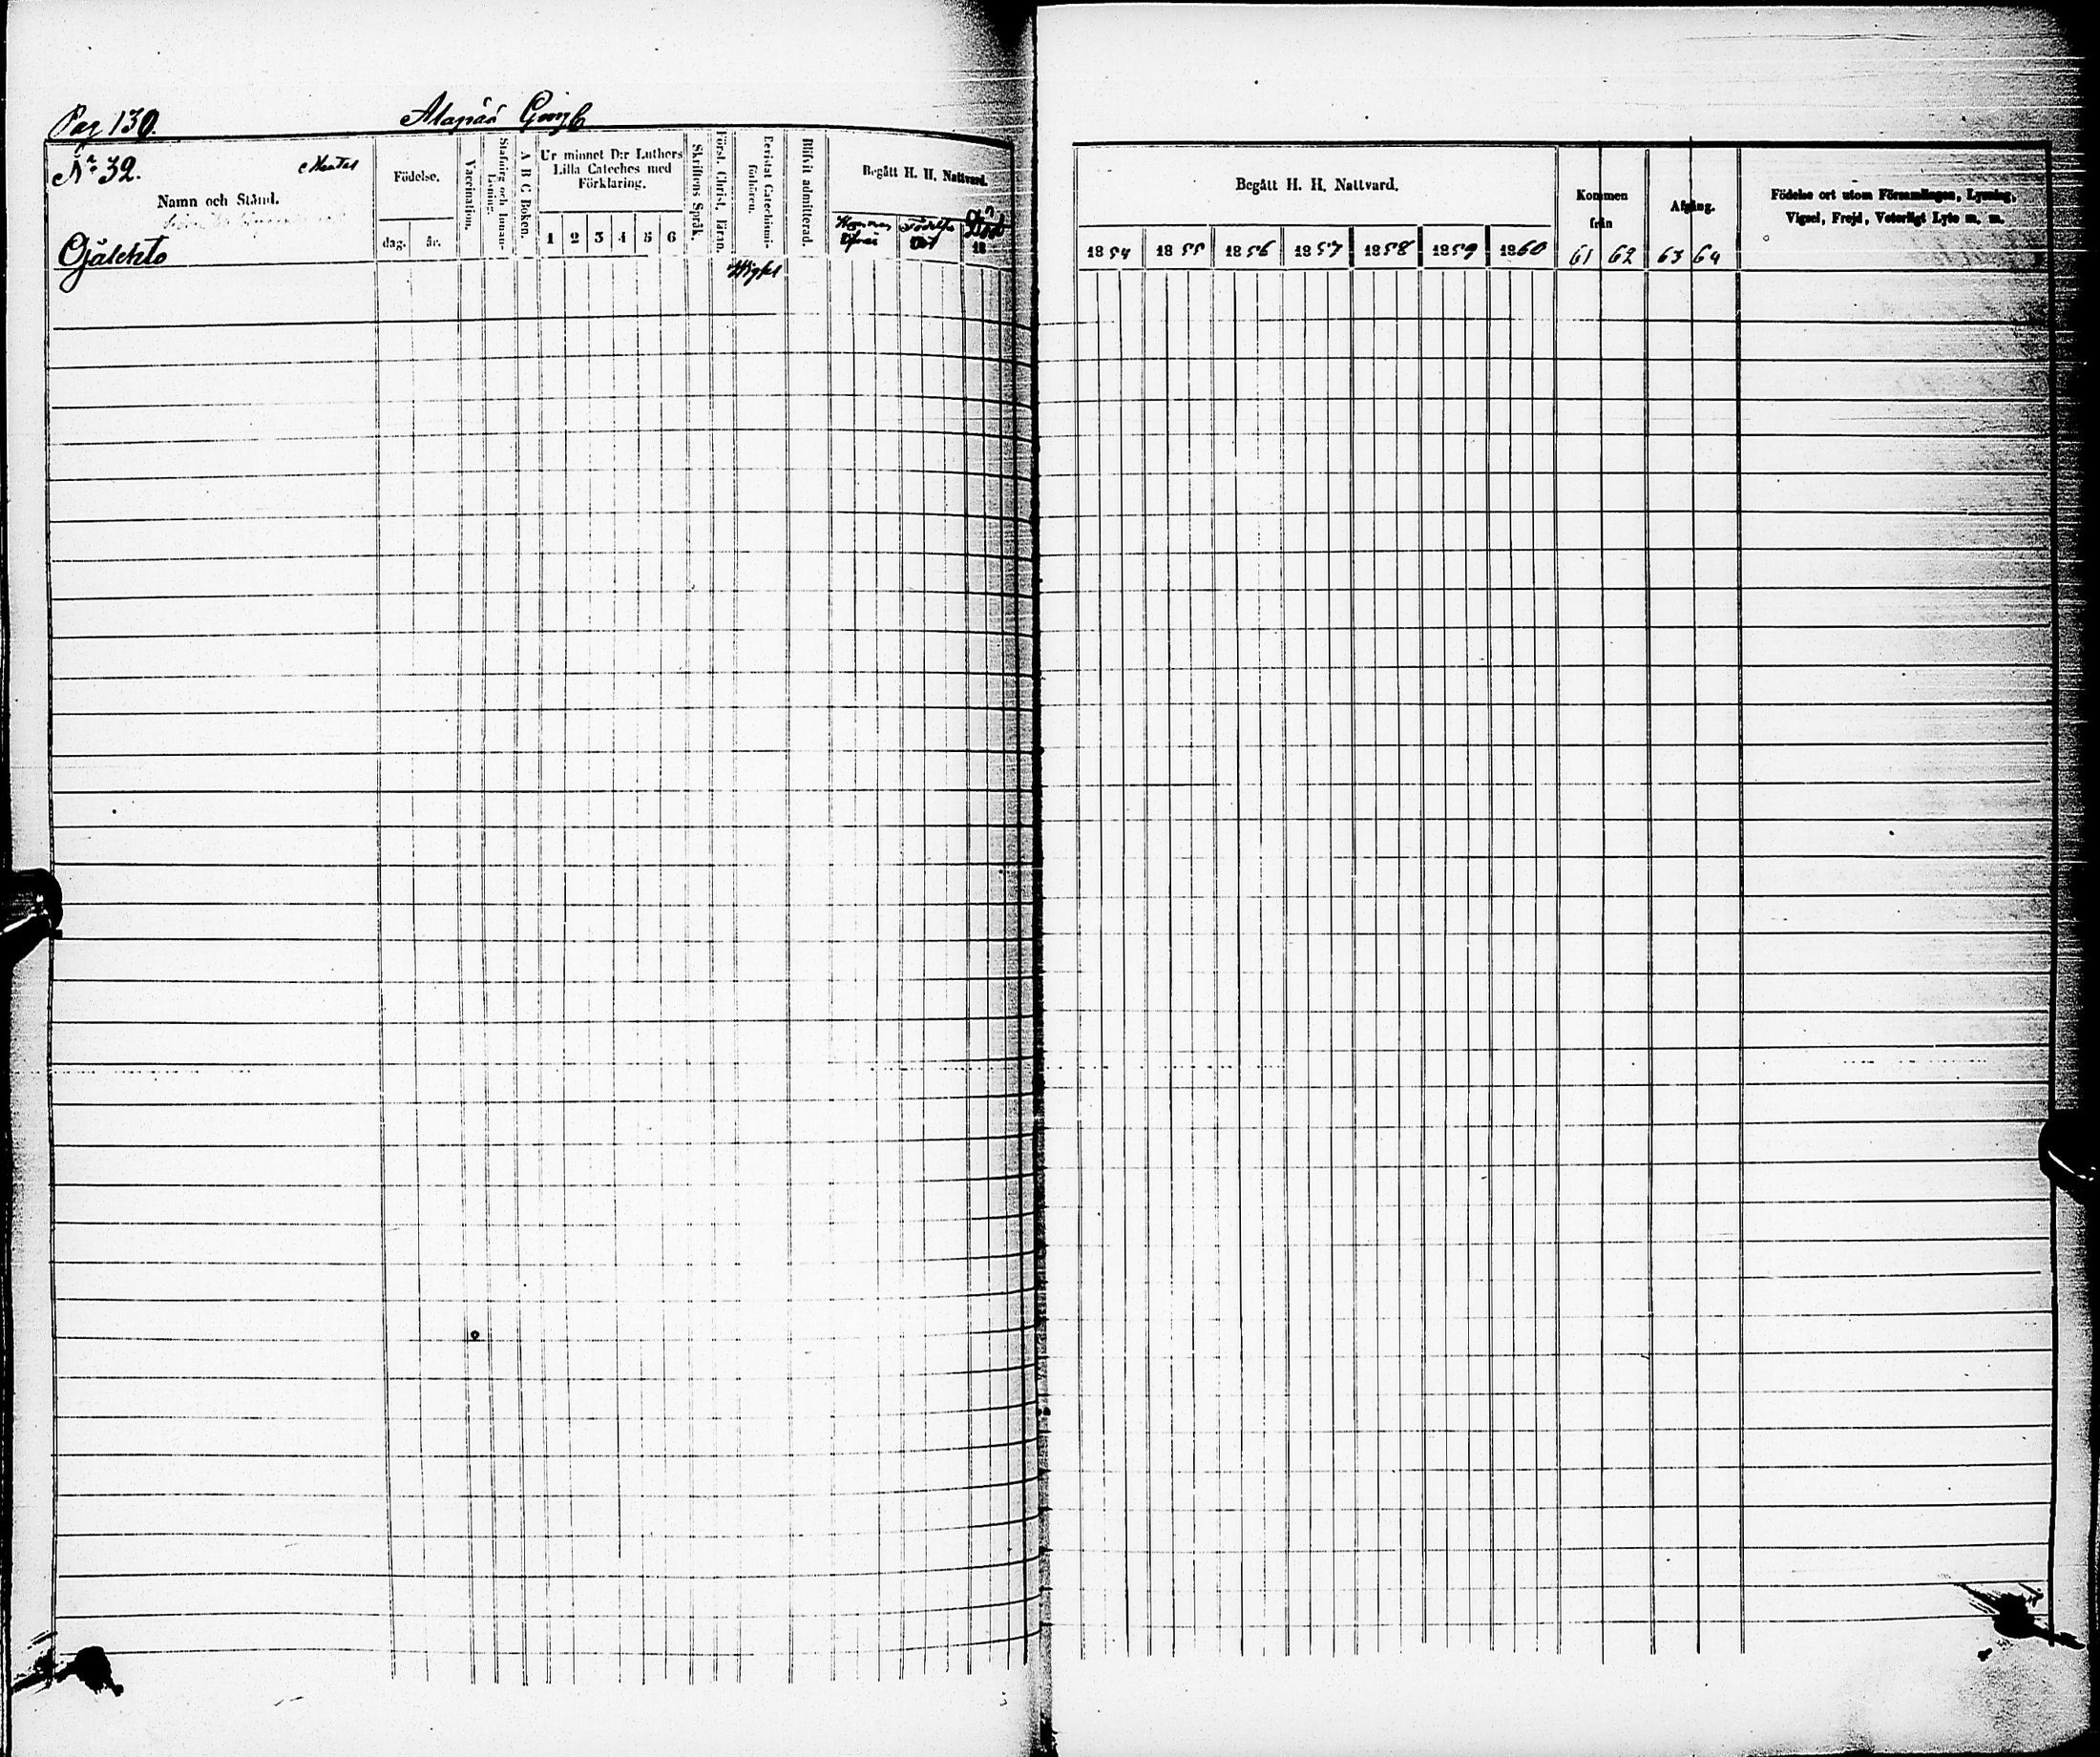 Pag 130.
Alapää
N:o 32.
Namn och Stånd.
Ojalehto
Födelse.
dag. år.
Vaccination.
Stafning och Innan-
läsning.
A B C. Boken.
Ur minnet D:r Luthers
Lilla Cateches med
Förklaring.
1 2 3 4 5 6
Skriftens Språk.
Först. Christ. läran.
Bevistat Catechismi-
förhören.
Blifvit admitterad.
Begått H. H. Nattvard.
18
Begått H. H. Nattvard.
1854 1855 1856 1857 1858 1859 1860
Kommen
från
61 62
Afgång.
63 64
Födelse ort utom Församlingen, Lysning,
Vigsel, Frejd, Veterligt Lyte m. m.